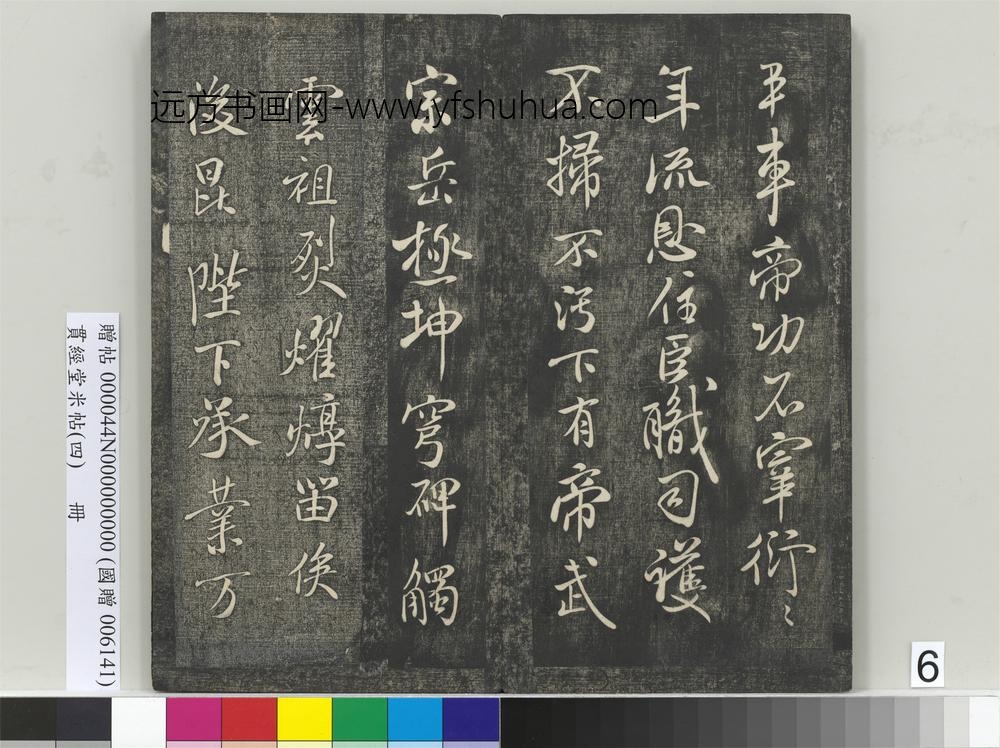 平車帝功石宰衍〻
年流恩住臣職司護
不掃不污下有帝武
宗岳極坤穹碑觸
雲祖烈燿焞留侯
後昆陛下承業万
远方书画网-www.yfshuhua.com
贈帖 000044N000000000 (國贈 006141)
貫經堂米帖(四) 冊
6